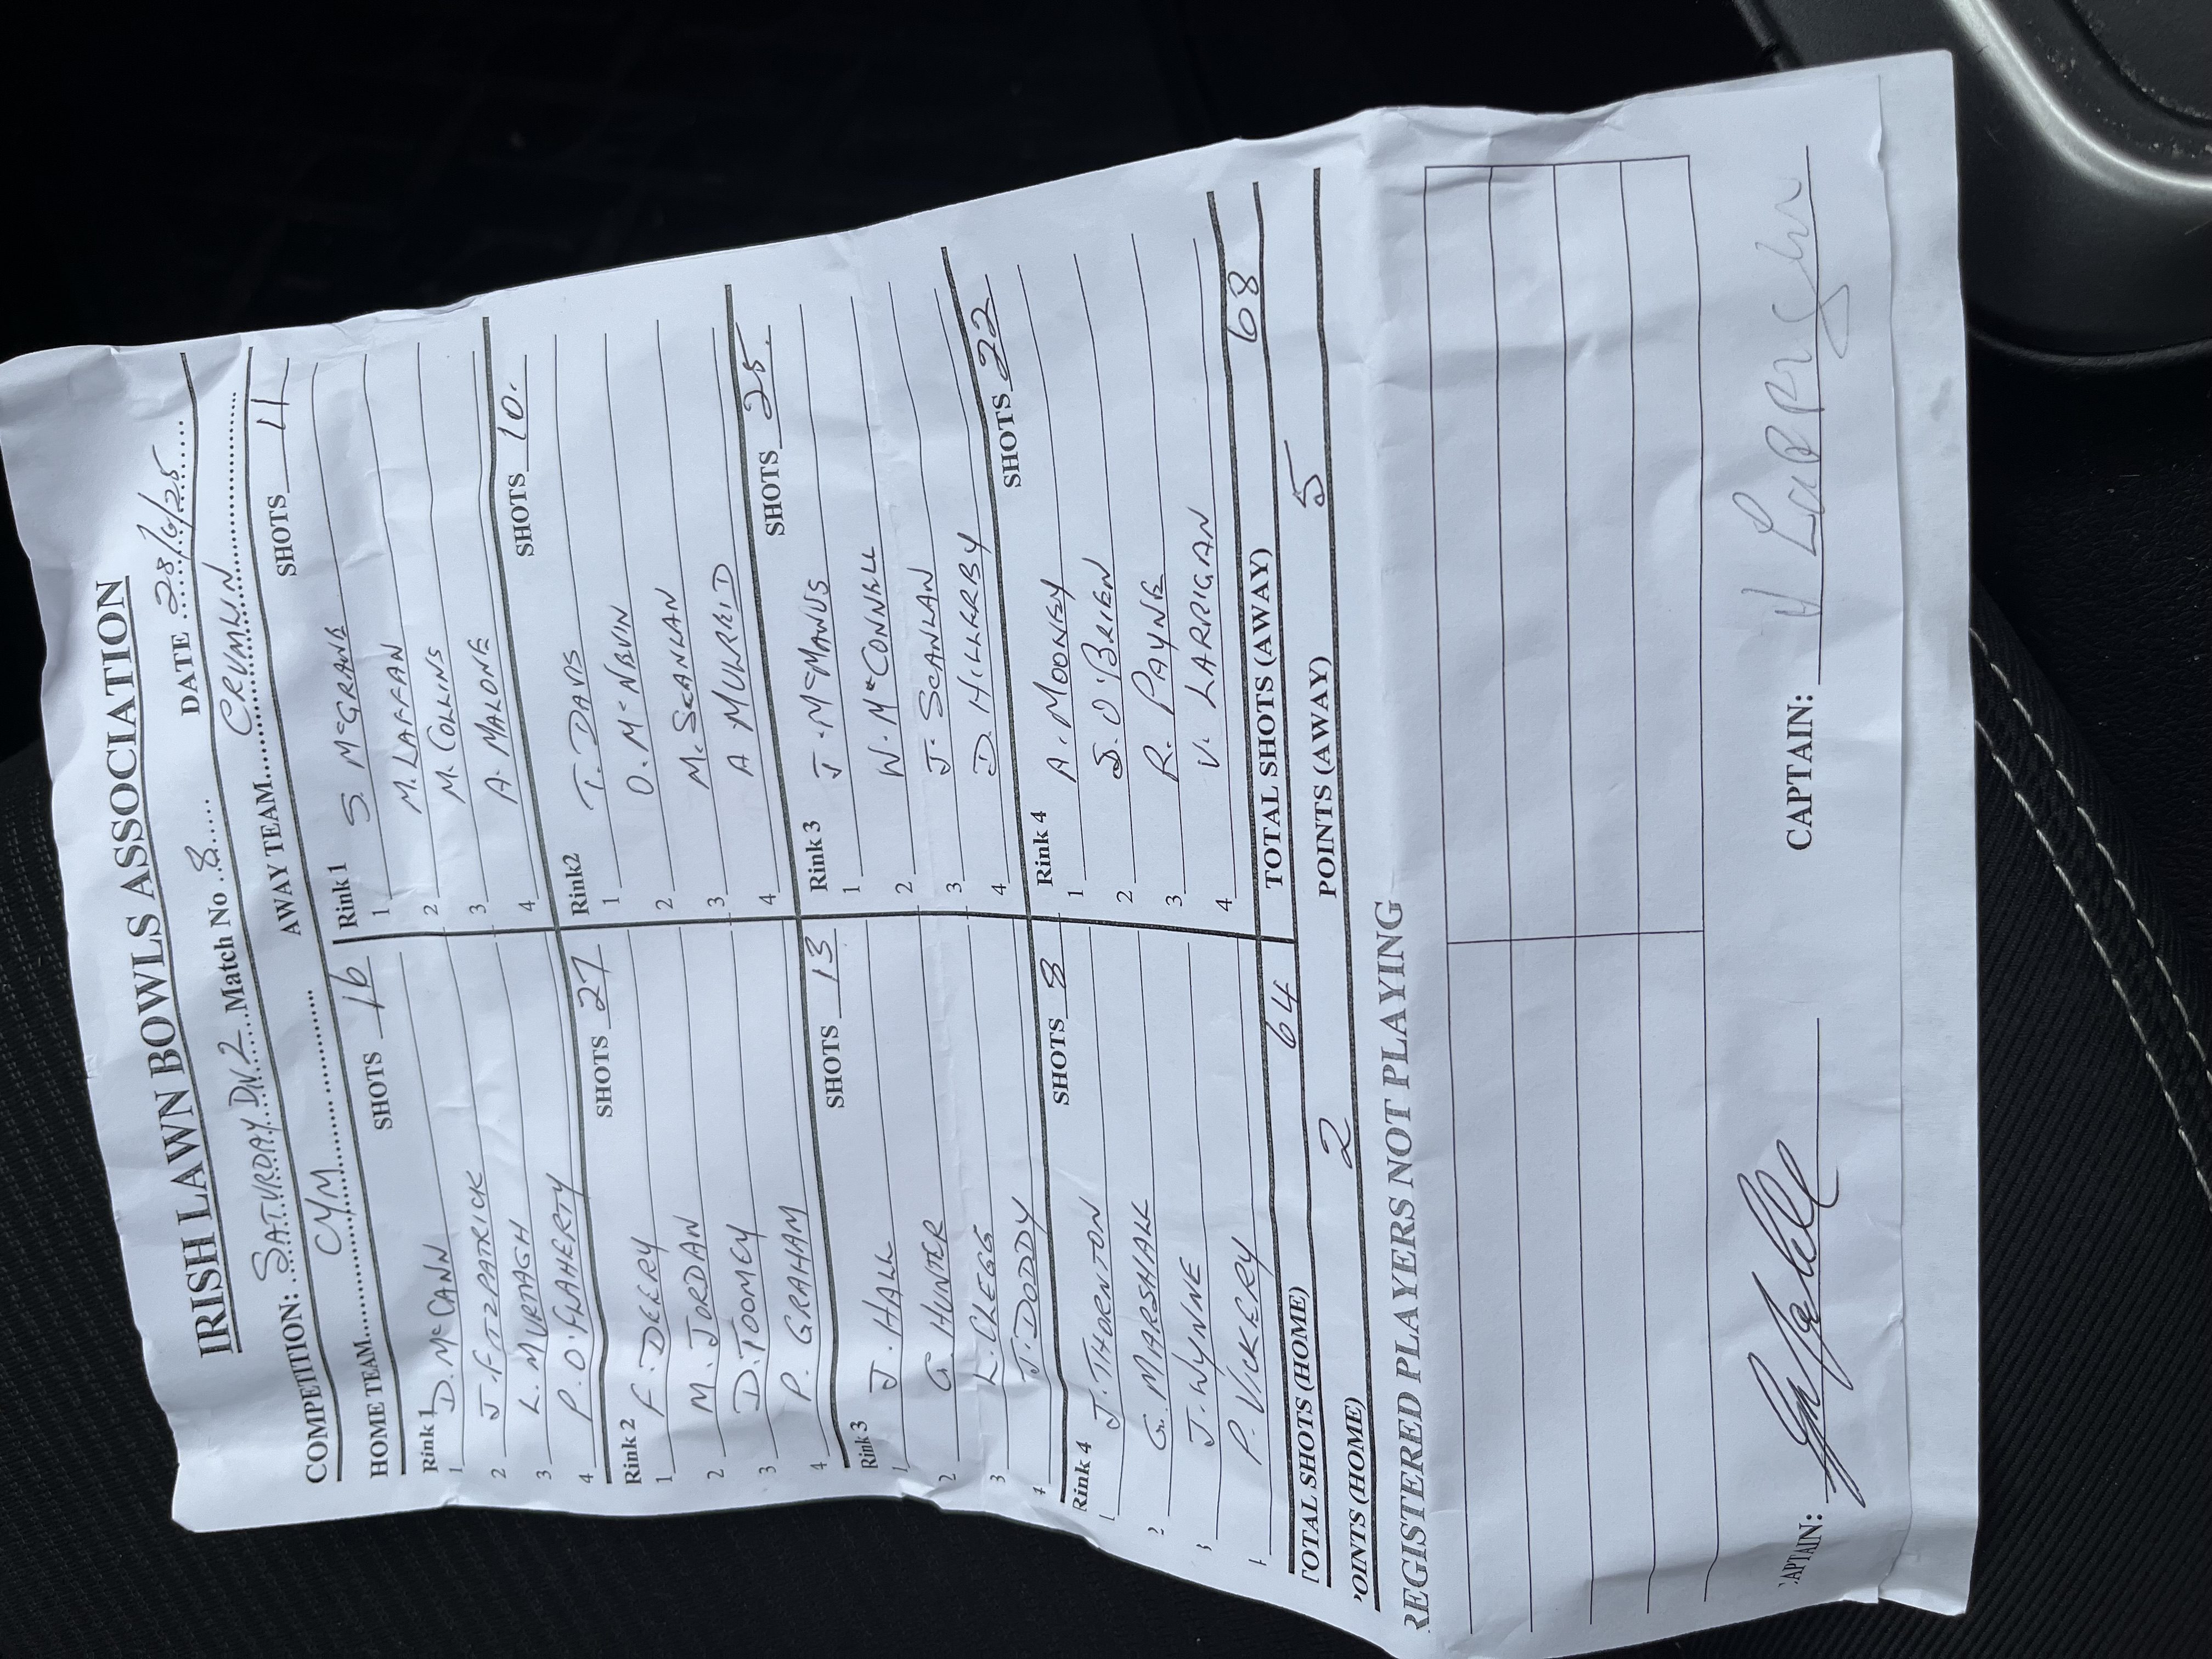 IRISH LAWN BOWLS ASSOCIATION
COMPETITION: SATURDAY DN.2 Match No 8 DATE 28/6/25
HOME TEAM CYM AWAY TEAM CRUMLIN
SHOTS 16 SHOTS 11
Rink 1 Rink 1
1 D. McCANN 1 S. McGRANE
2 J. FITZPATRICK 2 M. LAFFAN
3 L. MURTAGH 3 M. COLLINS
4 P. O'FLAHERTY 4 A. MALONE
SHOTS 27 SHOTS 10.
Rink 2 Rink2
1 F. DEERY 1 T. DAVIS
2 M. JORDAN 2 O. McNEVIN
3 D. TOOMEY 3 M. SCANLAN
4 P. GRAHAM 4 A MULREID
SHOTS 13 SHOTS 25.
Rink 3 Rink 3
1 J. HALL 1 J. McMANUS
2 G. HUNTER 2 W. McCONNELL
3 L. CLEGG 3 J. SCANLAN
4 J. DODDY 4 D. HILLERBY
SHOTS 8 SHOTS 22
Rink 4 Rink 4
J. THORNTON 1 A. MOONEY
G. MARSHALL 2 S. O'BRIEN
J. WYNNE 3 R. PAYNE
P. VICKERY 4 V. LARRIGAN
TOTAL SHOTS (HOME) 64 TOTAL SHOTS (AWAY) 68
OINTS (HOME) 2 POINTS (AWAY) 5
REGISTERED PLAYERS NOT PLAYING
APTAIN: CAPTAIN: